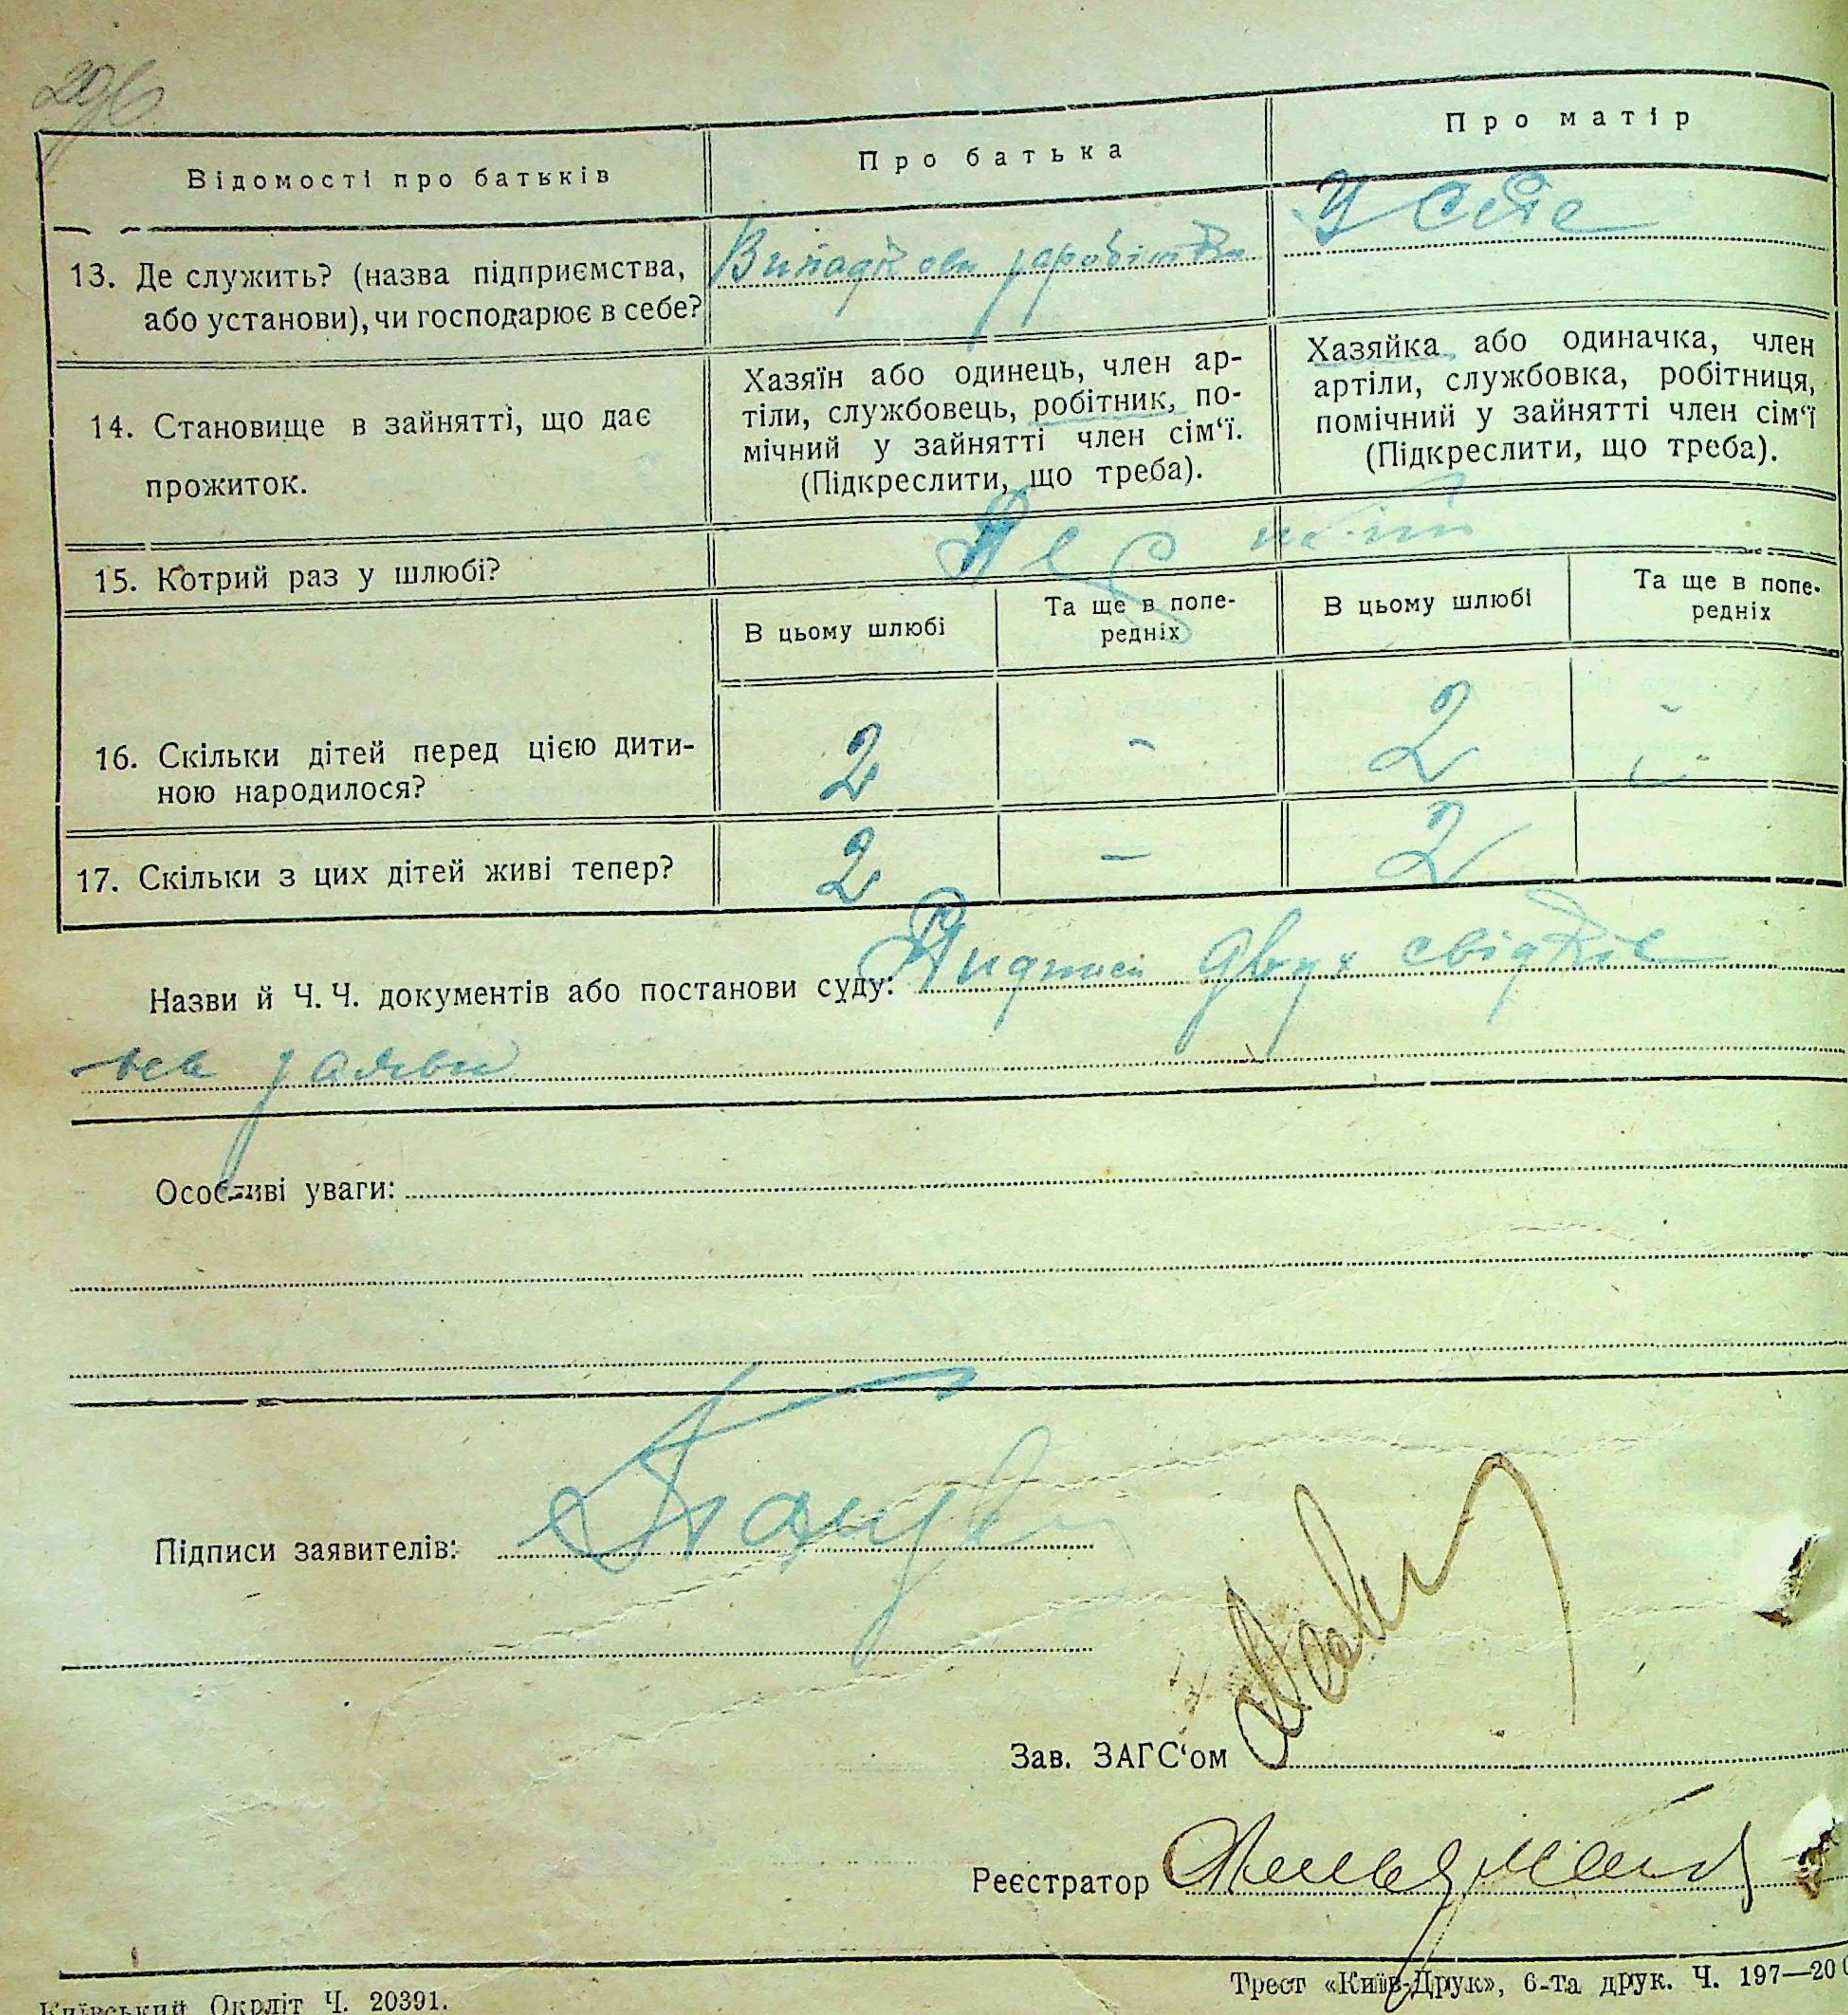 296
Відомості про батьків
Про батька
Про матір
13. Де служить? (назва підприємства,
або установи), чи господарює в себе?
Випадкови заробітки
У себе
14. Становище в зайнятті, що дає
прожиток.
Хазяїн або одинець, член ар-
тіли, службовець, робітник, по-
мічний у зайнятті член сім‘ї.
(Підкреслити, що треба).
Хазяйка або одиначка, член
артіли, службовка, робітниця,
помічний у зайнятті член сім‘ї
(Підкреслити, що треба).
15. Котрий раз у шлюбі?
В цьому шлюбі
Та ще в попе-
редніх
В цьому шлюбі
Та ще в попе-
редніх
16. Скільки дітей перед цією дити-
ною народилося?
2 - 2 -
17. Скільки з цих дітей живі тепер?
2 - 2
Назви й Ч. Ч. документів або постанови суду: двух свідків
заяви
Особливі уваги:
Підписи заявителів:
Зав. ЗАГС‘ом
Реєстратор
Київський Окрліт Ч. 20391.
Трест «Київ-Друк», 6-та друк. Ч. 197—20